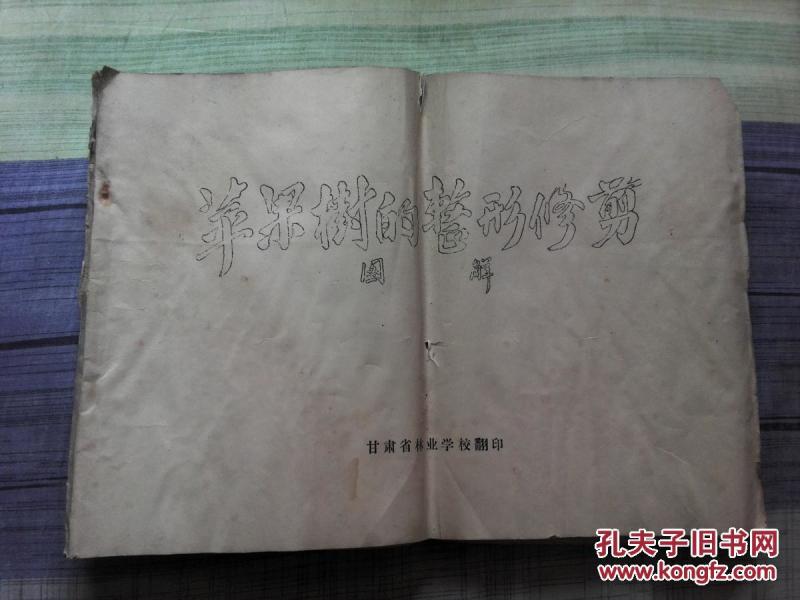 苹果樹的整形修剪
图解
甘肃省林业学校翻印
孔夫子旧书网
www.kongfz.com